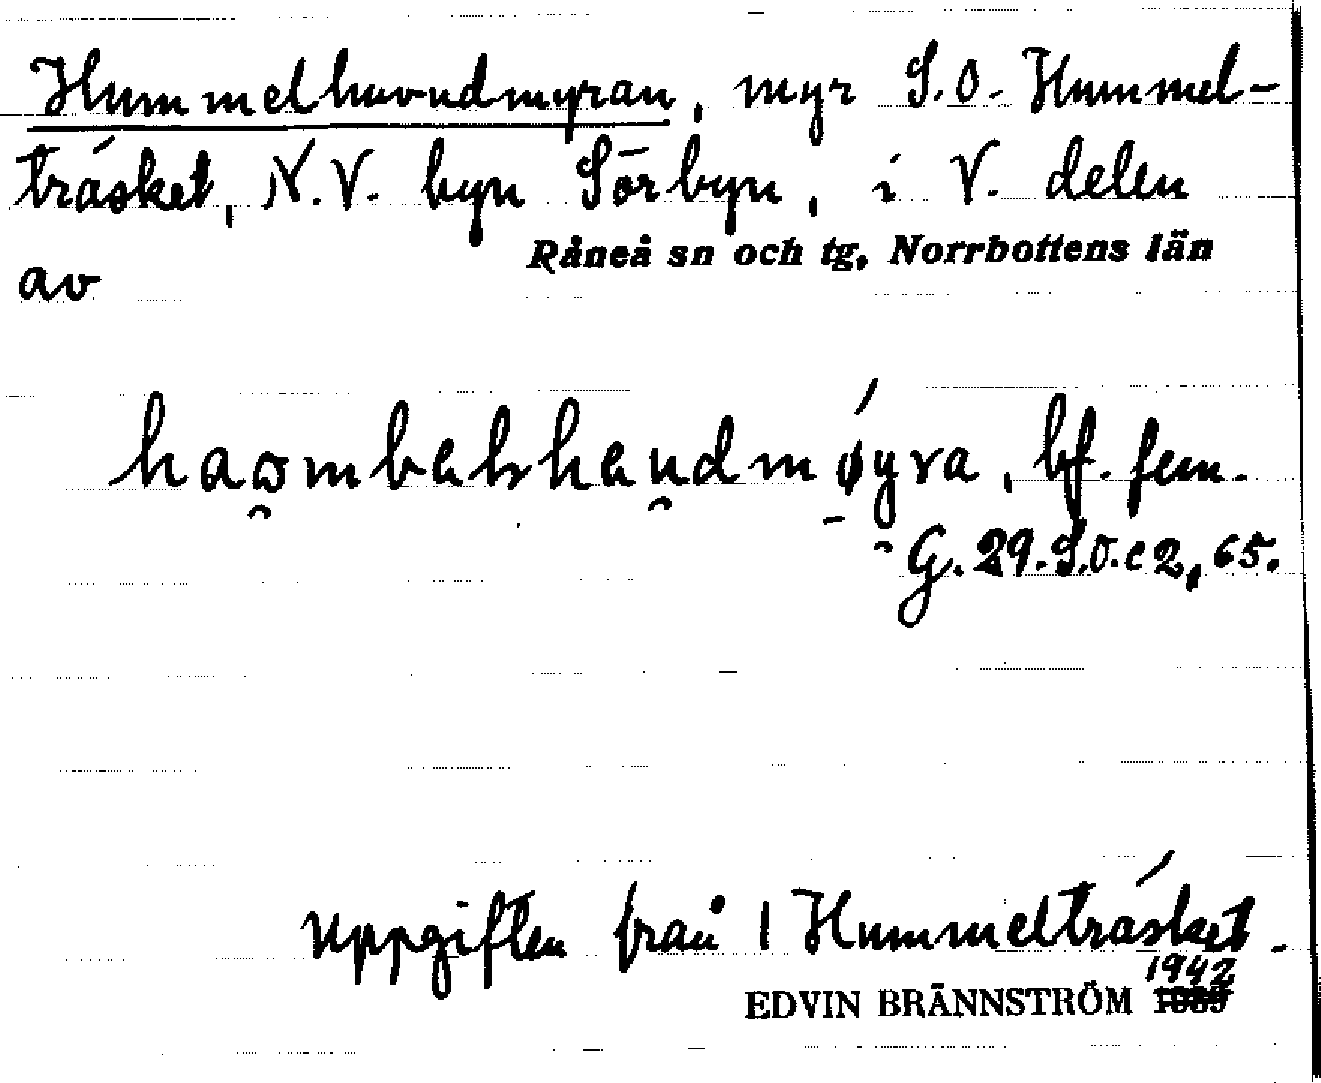 Hummelhuvudmyran, myr S.O. Hummel-
träsket, N.V. byn Sörbyn, i V. delen
av Råneå sn och tg, Norrbottens län
bf. fem.
G. 29. S.O. c 2, 65.
Uppgiften från 1 Hummelträsket.
EDVIN BRÄNNSTRÖM 1942